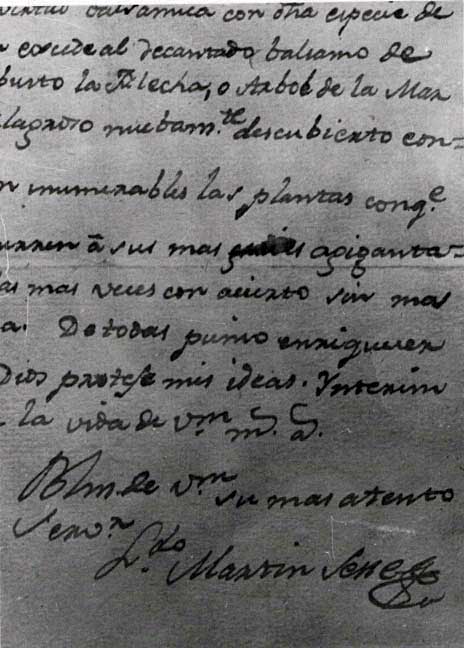 balsamica con otra especie de
excede al decantado balsamo de
la Flecha, o Arbol de la Mar
lagroso nuebam.te descubierto con=
n inumerables las plantas conq.e
urren â sus mas agiganta=
as mas veces con acierto sin mas
a. De todas pienso enriquecer
Dios protege mis ideas. Interin
la vida de vm m.s a.s
BLm. de vm su mas atento
Serv.r
L.do Martin Sesse